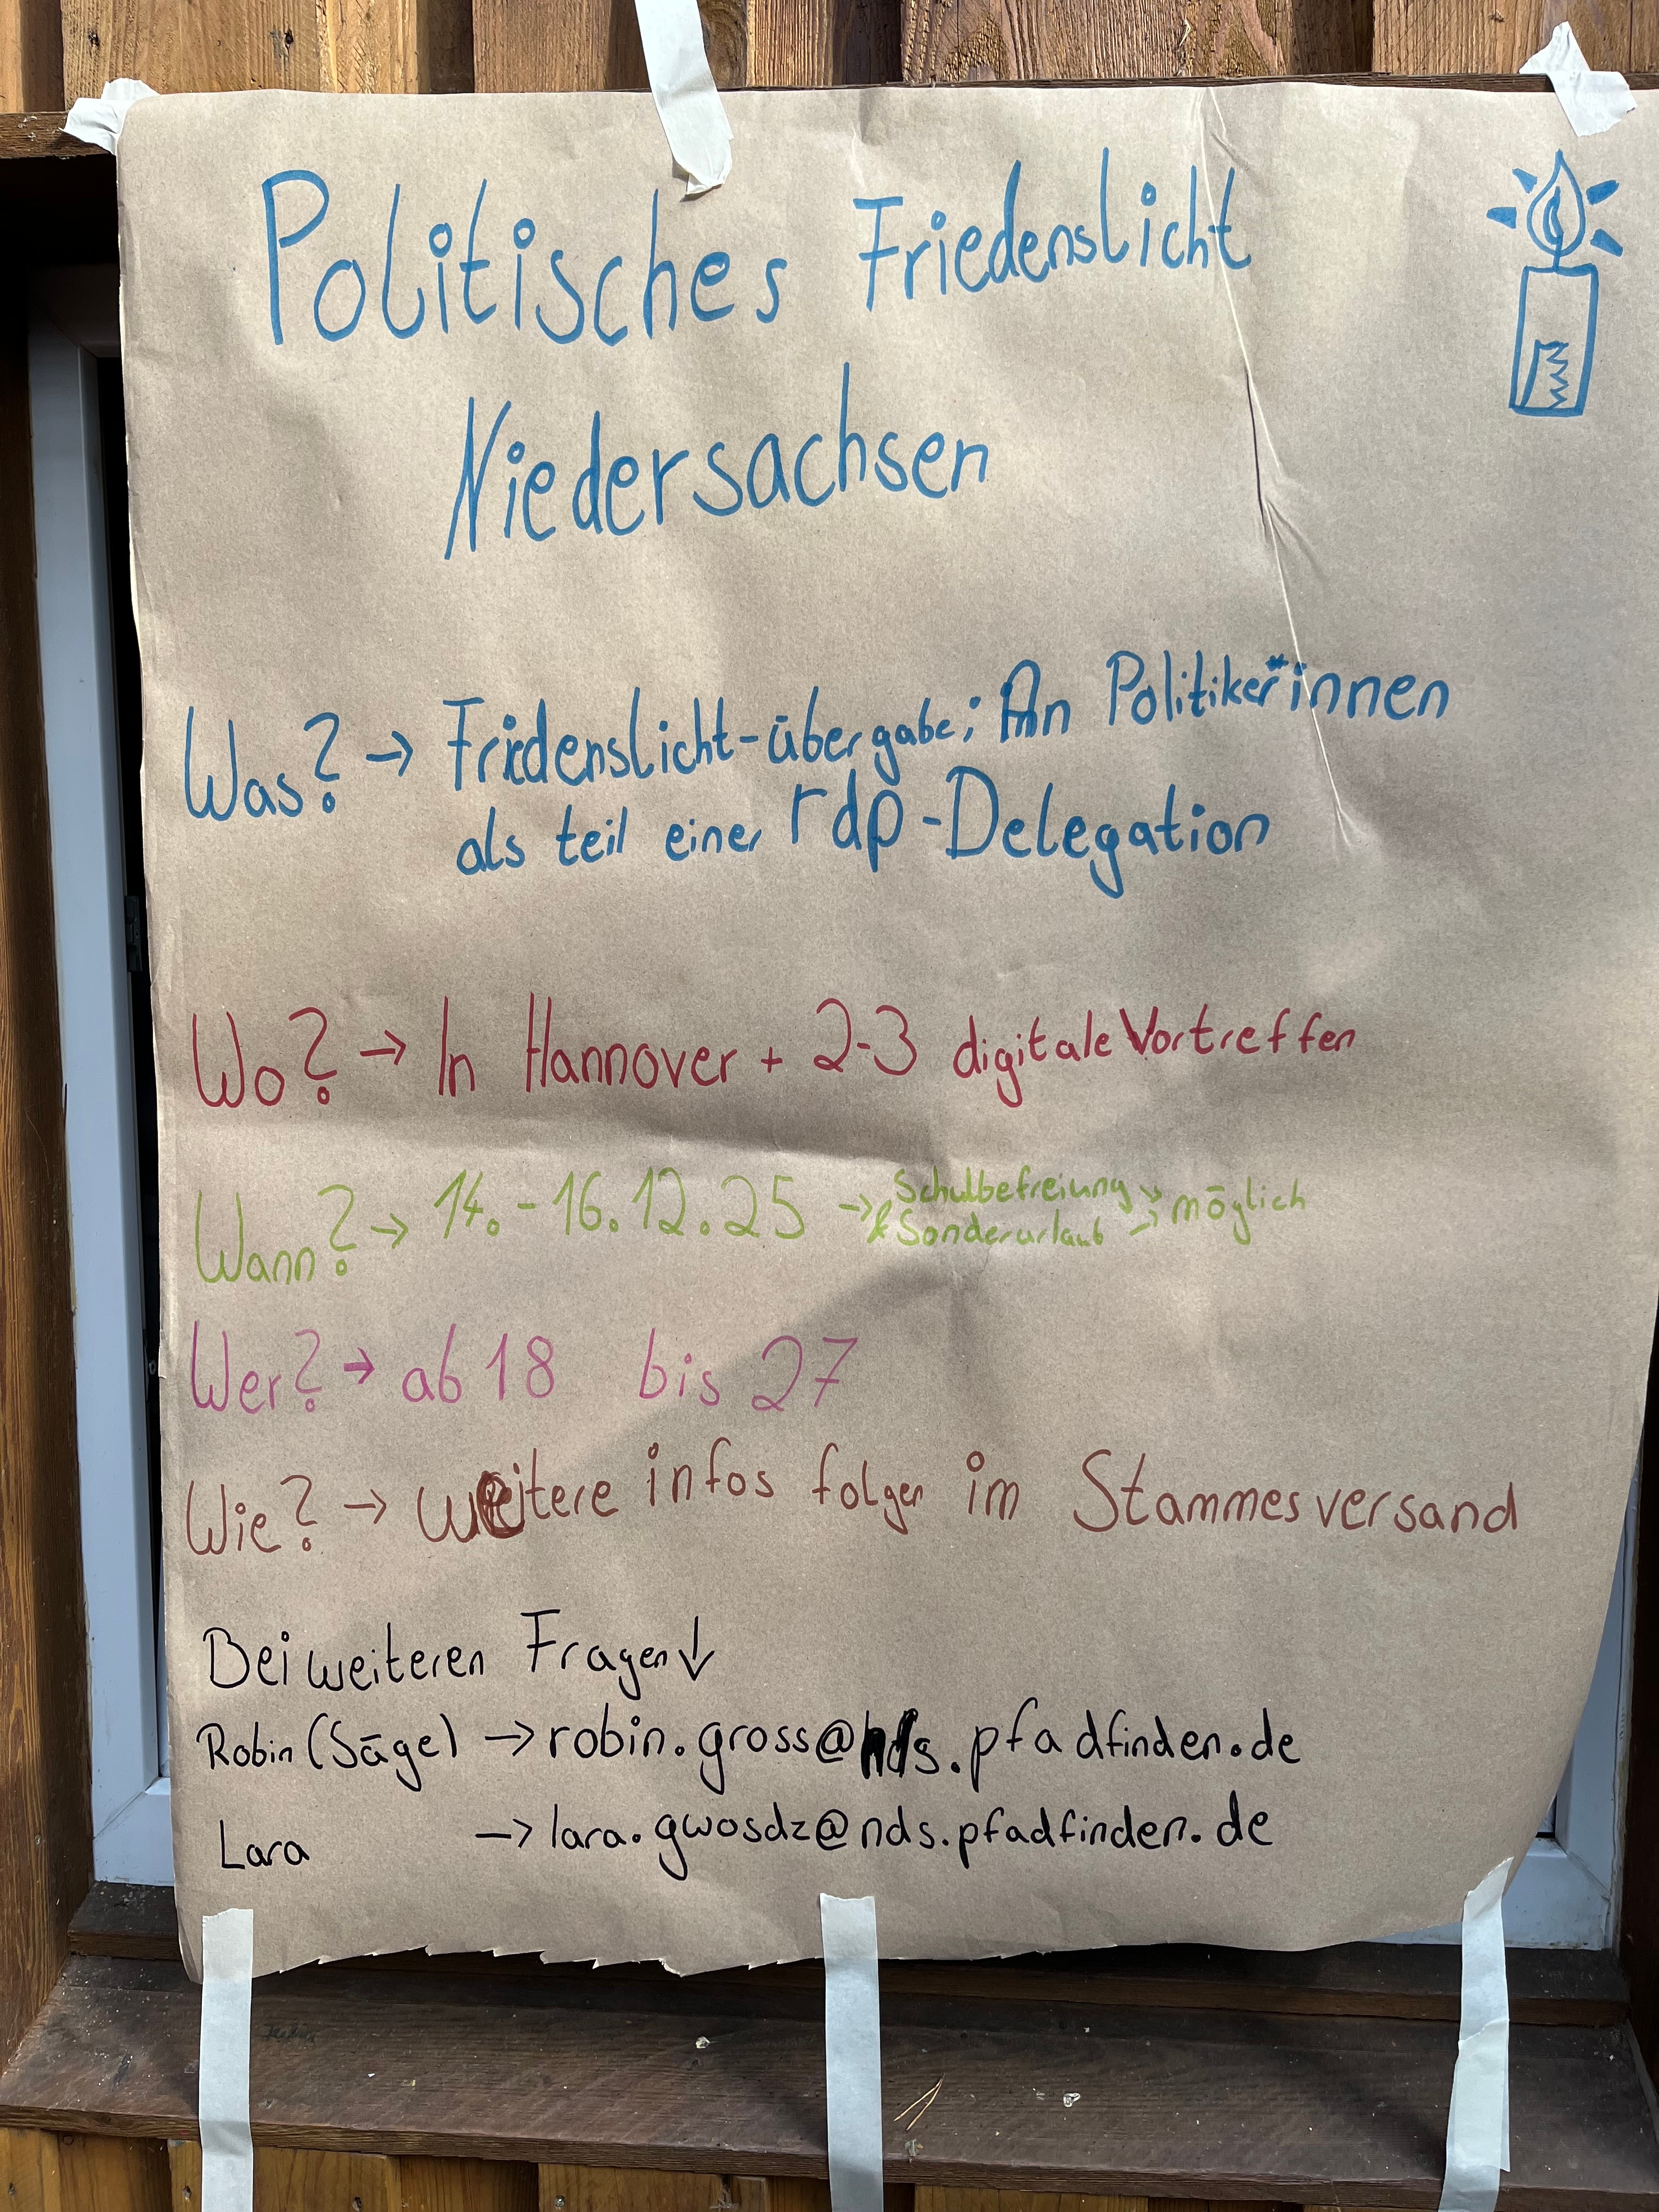 Politisches Friedenslicht
Niedersachsen
Was? → Friedenslicht-übergabe; An Politiker*innen
als teil einer rdp-Delegation
Wo? → In Hannover + 2-3 digitale Vortreffen
Wann? → 14.-16.12.25 → Schulbefreiung → möglich
& Sonderurlaub →
Wer? → ab 18 bis 27
Wie? → weitere infos folgen im Stammesversand
Bei weiteren Fragen ↓
Robin (Säge) → robin.gross@nds.pfadfinden.de
Lara → lara.gwosdz@nds.pfadfinden.de